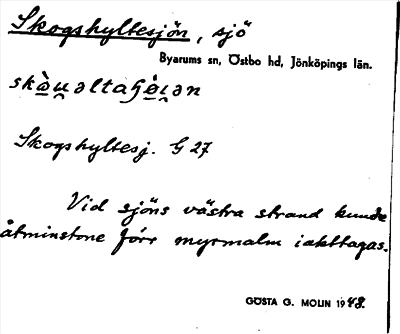 Skogshyltesjön, sjö
Byarums sn, Östbo hd, Jönköpings län.
Skogshyltesj. G 27
Vid sjöns västra strand kunde
åtminstone förr myrmalm iakttagas.
GÖSTA G. MOLIN 1948.